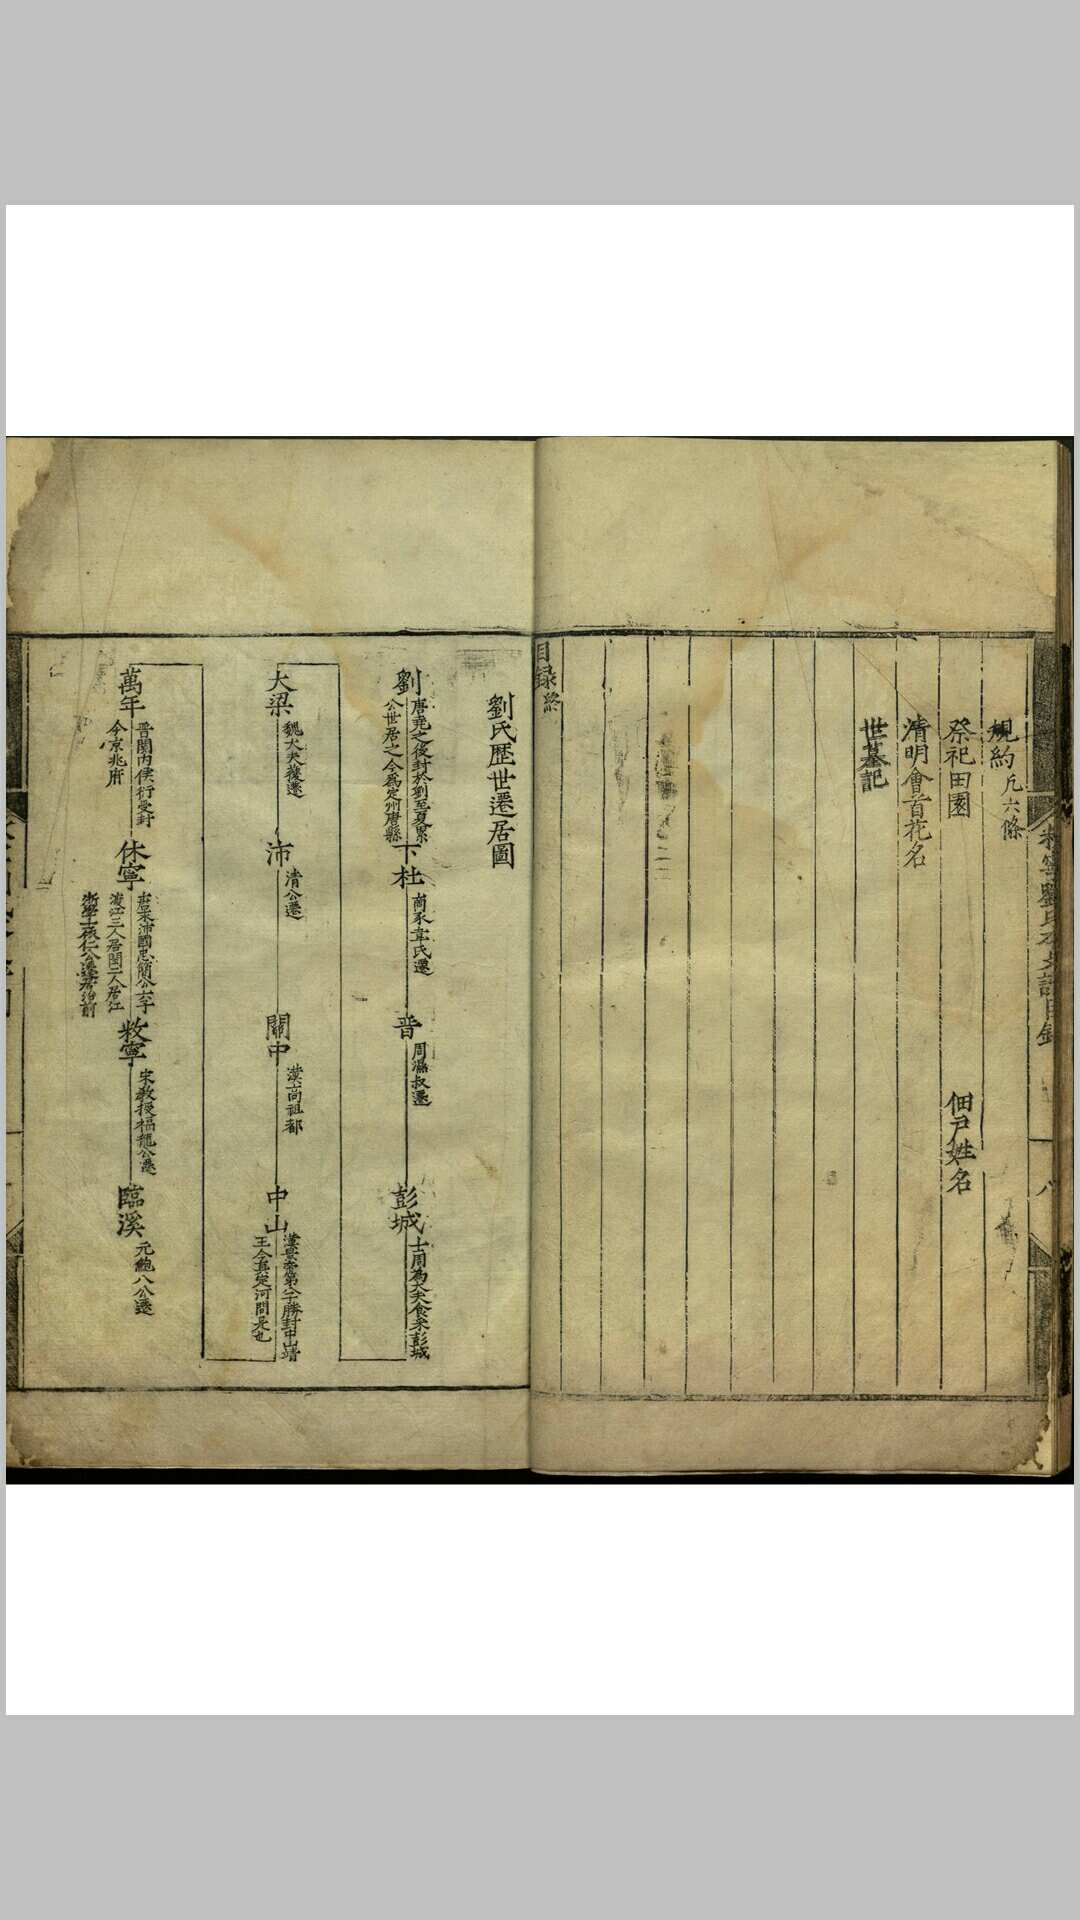 規約凡六條
祭祀田園 佃戶姓名
清明會首花名
世墓記
目録終
劉氏歷世遷居圖
劉
唐堯之後封於劉至夏累
公世居之今為定州唐縣
下杜
商豕韋氏遷
晉
周濕叔遷
彭城
士周為大夫食采彭城
大梁
魏大夫獲遷
沛
清公遷
關中
漢高祖都
中山
漢景帝第八子勝封中山靖
王今真定河間是也
萬年
晉關內侯衍受封
今京兆府
休寧
唐末沛國忠簡公子
渡江三人居閩二人居江
敉寧
宋教授福龍公遷
臨溪
元鮑八公遷